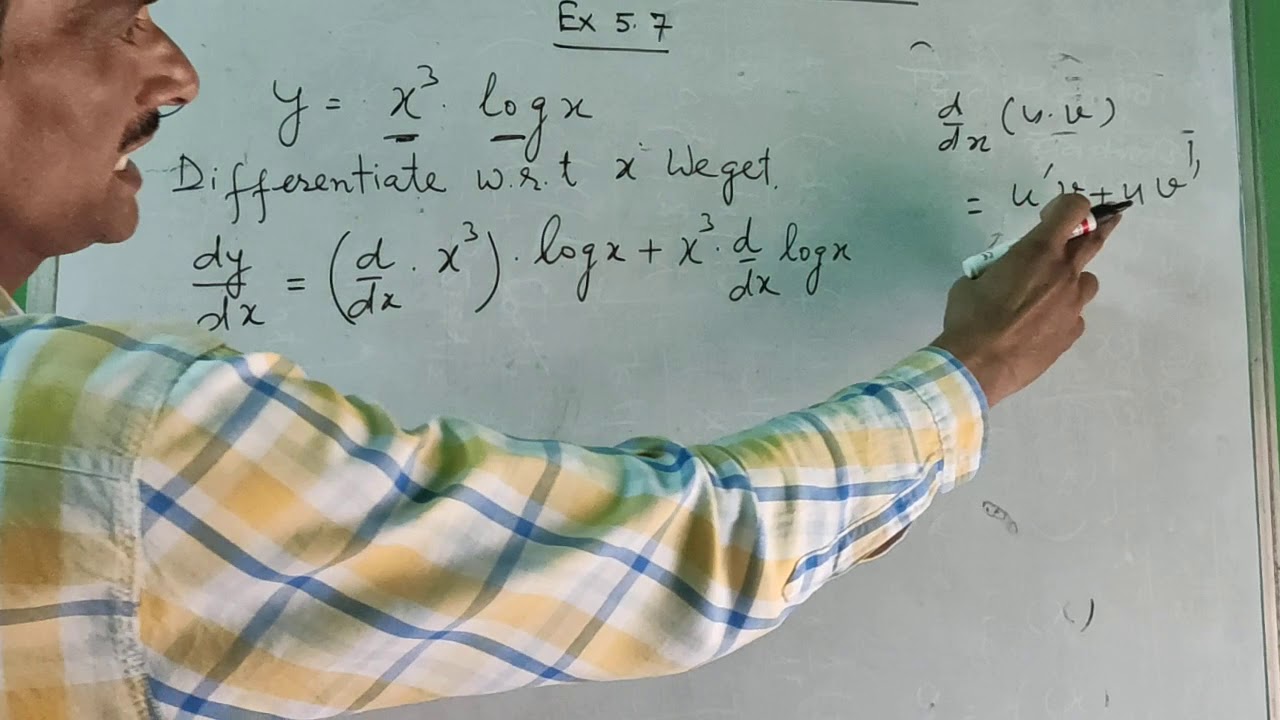 Ex 5.7
y = x³. log x
Differentiate w.r.t x We get.
dy/dx = (d/dx . x³) . log x + x³ . d/dx log x
d/dx (u.v)
= u'v + uv'